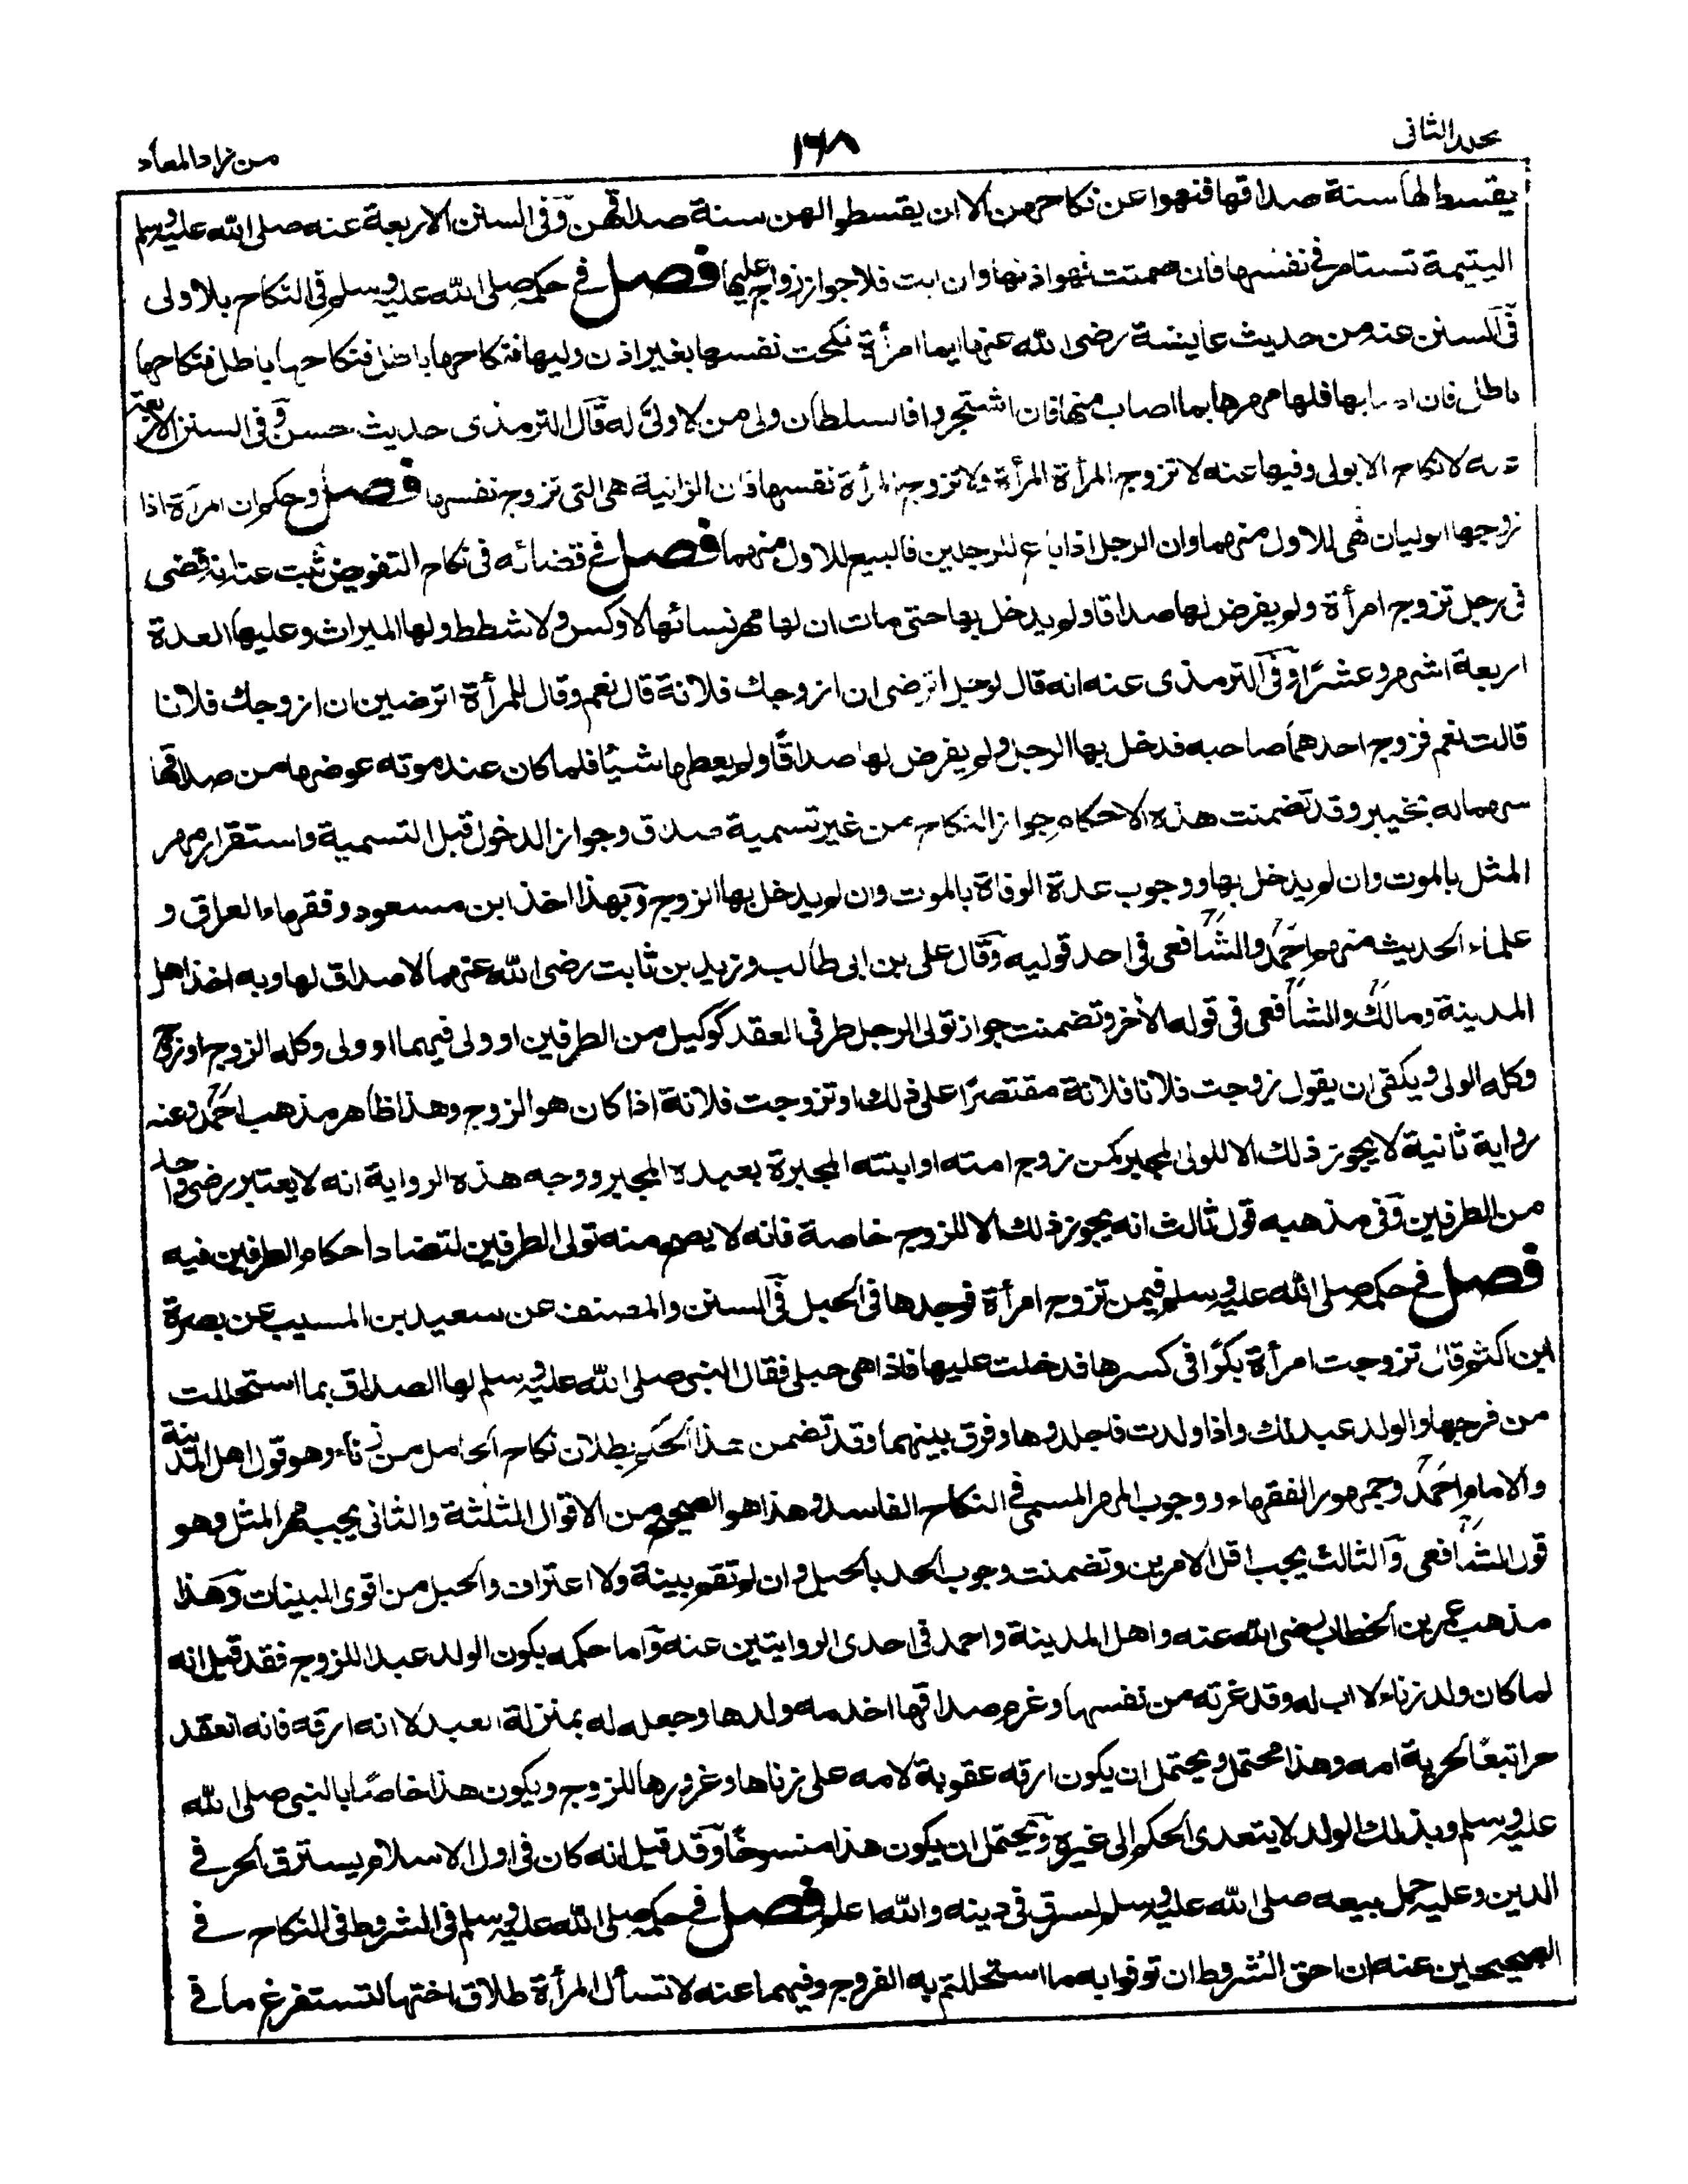 مجلد الثانى
١٦٨
من زاد المعاد
يقسط لها سنة صداقها فنهوا عن نكاحهن الا ان يقسطوا لهن سنة صداقهن وفى السنن الاربعة عنه صلى الله عليه وسلم
اليتيمة تستامر فى نفسها فان صمتت فهو اذنها وان ابت فلا جواز زواج عليها فصل فى حكمه صلى الله عليه وسلم فى النكاح بلا ولى
فى السنن عنه من حديث عايشة رضى الله عنها ايما امرأة نكحت نفسها بغير اذن وليها فنكاحها باطل فنكاحها باطل فنكاحها
باطل فان اصابها فلها مهرها بما اصاب منها فان اشتجروا فالسلطان ولى من لا ولى له قال الترمذى حديث حسن وفى السنن الاربعة
عنه لا نكاح الا بولى وفيها عنه لا تزوج المرأة المرأة ولا تزوج المرأة نفسها فان الزانية هى التى تزوج نفسها فصل وحكم ان امرأة اذا
زوجها الوليان فهى للاول منهما وان الرجل اذا باع للرجلين فالبيع للاول منهما فصل فى قضائه فى نكاح التفويض ثبت عنه انه قضى
فى رجل تزوج امرأة ولم يفرض لها صداقا ولم يدخل بها حتى مات ان لها مهر نسائها لا وكس ولا شطط ولها الميراث وعليها العدة
اربعة اشهر وعشرًا وفى الترمذى عنه انه قال لرجل اترضى ان ازوجك فلانة قال نعم وقال للمرأة اترضين ان ازوجك فلانا
قالت نعم فزوج احدهما صاحبه فدخل بها الرجل ولم يفرض لها صداقًا ولم يعطها شيئا فلما كان عند موته عوضها من صداقها
سهما له بخيبر وقد تضمنت هذه الاحكام جواز النكاح من غير تسمية صداق وجواز الدخول قبل التسمية واستقرار مهر
المثل بالموت وان لم يدخل بها ووجوب عدة الوفاة بالموت وان لم يدخل بها الزوج وبهذا اخذ ابن مسعود وفقهاء العراق و
علماء الحديث منهم احمد والشافعى فى احد قوليه وقال على بن ابى طالب وزيد بن ثابت رضى الله عنهما لا صداق لها وبه اخذ اهل
المدينة ومالك والشافعى فى قوله الآخر وتضمنت جواز تولى الرجل طرفى العقد كوكيل من الطرفين او ولى فيهما او ولى وكله الزوج او زوج
وكله الولى ويكفى ان يقول زوجت فلانا فلانة مقتصرًا على ذلك او تزوجت فلانة اذا كان هو الزوج وهذا ظاهر مذهب احمد وعنه
رواية ثانية لا يجوز ذلك الا للولى المجبر كمن زوج امته او ابنته المجبرة بعبده المجبر ووجه هذه الرواية انه لا يعتبر رضى واحد
من الطرفين وفى مذهبه قول ثالث انه يجوز ذلك الا للزوج خاصة فانه لا يصح منه تولى الطرفين لتضاد احكام الطرفين فيه
فصل فى حكمه صلى الله عليه وسلم فيمن تزوج امرأة فوجدها فى الحبل فى السنن والمصنف عن سعيد بن المسيب عن بصرة
ابن اكثم قال تزوجت امرأة بكرًا فى كسرها فدخلت عليها فاذا هى حبلى فقال النبى صلى الله عليه وسلم لها الصداق بما استحللت
من فرجها والولد عبد لك واذا ولدت فاجلدوها وفرق بينهما وقد تضمن هذا الحكم بطلان نكاح الحامل من زناء وهو قول اهل المدينة
والامام احمد وجمهور الفقهاء ووجوب المهر المسمى فى النكاح الفاسد وهذا هو الصحيح من الاقوال الثلثة والثانى يجب مهر المثل وهو
قول الشافعى والثالث يجب اقل الامرين وتضمنت وجوب الحد بالحبل وان لم تقم بينة ولا اعتراف والحبل من اقوى البينات وهذا
مذهب عمر بن الخطاب رضى الله عنه واهل المدينة واحمد فى احدى الروايتين عنه واما حكمه بكون الولد عبدا للزوج فقد قيل انه
لما كان ولد زناء لا اب له وقد غرته من نفسها وغرم صداقها اخدمه ولدها وجعله له بمنزلة العبد لا انه ارقه فانه انعقد
حرا تبعًا لحرية امه وهذا محتمل ويحتمل ان يكون ارقه عقوبة لامه على زناها وغرورها للزوج ويكون هذا خاصًا بالنبى صلى الله
عليه وسلم وبذلك الولد لا يتعدى الحكم الى غيره ويحتمل ان يكون هذا منسوخًا وقد قيل انه كان فى اول الاسلام يسترق الحر فى
الدين وعليه حمل بيعه صلى الله عليه وسلم لسرق فى دينه والله اعلم فصل فى حكمه صلى الله عليه وسلم فى الشروط فى النكاح فى
الصحيحين عنه ان احق الشروط ان توفوا به ما استحللتم به الفروج وفيهما عنه لا تسأل المرأة طلاق اختها لتستفرغ ما فى